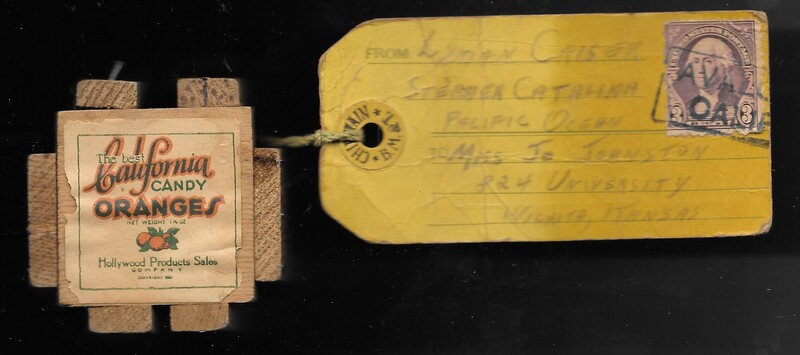 The best
California
CANDY
ORANGES
NET WEIGHT 1¼ OZ
Hollywood Products Sales
COMPANY
FROM Lyman Criser
Steamer Catalina
Pacific Ocean
TO Miss Jo Johnston
824 University
Wichita, Kansas
3 3
AVAL